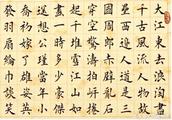 大江東去浪淘盡
千古風流人物故
壘西邊人道是三
國周郎赤壁亂石
穿空驚濤拍岸捲
起千堆雪江山如
畫一時多少豪傑
遙想公瑾當年小
喬初嫁了雄姿英
發羽扇綸巾談笑